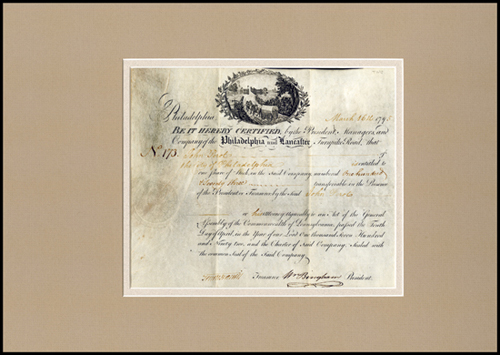 Philadelphia March 16th 179
BE IT HEREBY CERTIFIED, by the President, Managers, and
Company of the Philadelphia and Lancaster Turnpike Road, that
No. 173 of
the City of Philadelphia is entitled to
one Share of Stock in the Said Company, numbered One hundred
& Seventy three transferable in the Presence
of the President or Treasurer by the Said John
or his Attorney Agreeably to an Act of the General
Assembly of the Commonwealth of Pennsylvania, passed the Tenth
Day of April, in the Year of our Lord One thousand Seven Hundred
and Ninety two, and the Charter of Said Company. Sealed with
the common Seal of the Said Company.
Treasurer Wm Bingham President.